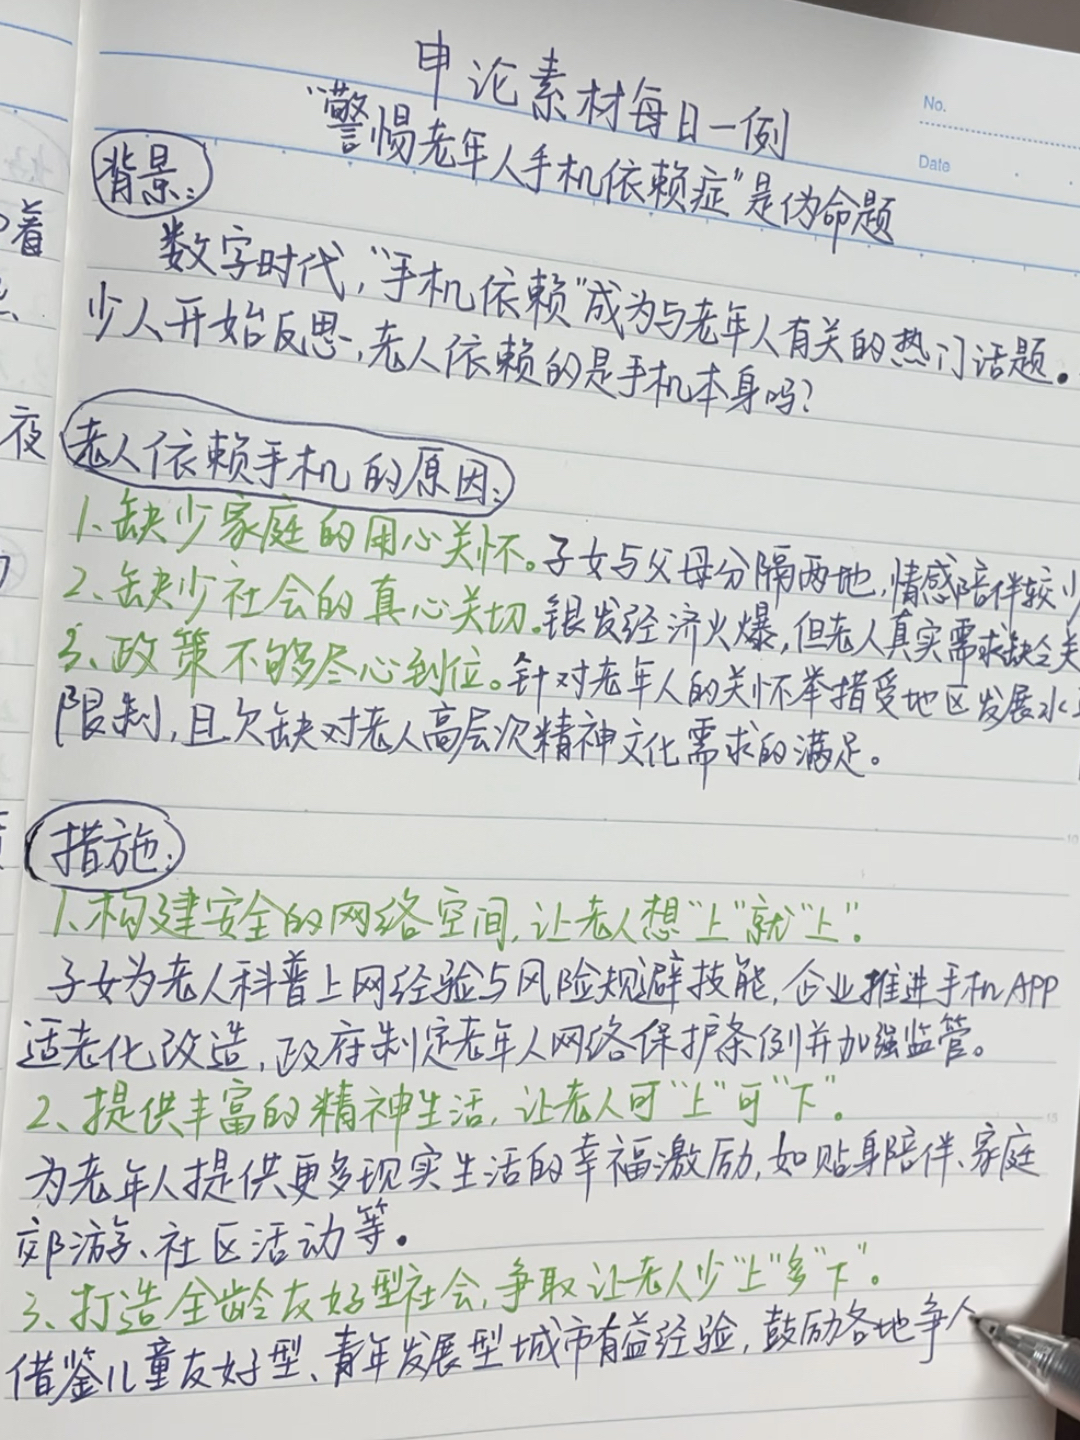 申论素材每日一例
"警惕老年人手机依赖症"是伪命题
No.
Date
背景:
数字时代,"手机依赖"成为与老年人有关的热门话题。
少人开始反思,老人依赖的是手机本身吗?
老人依赖手机的原因:
1、缺少家庭的用心关怀。子女与父母分隔两地,情感陪伴较少
2、缺少社会的真心关切。银发经济火爆,但老人真实需求缺乏关
3、政策不够尽心到位。针对老年人的关怀举措受地区发展水
限制,且欠缺对老人高层次精神文化需求的满足。
措施:
1、构建安全的网络空间,让老人想"上"就"上"。
子女为老人科普上网经验与风险规避技能,企业推进手机APP
适老化改造,政府制定老年人网络保护条例并加强监管。
2、提供丰富的精神生活,让老人可"上"可"下"。
为老年人提供更多现实生活的幸福激励,如贴身陪伴、家庭
郊游、社区活动等。
3、打造全龄友好型社会,争取让老人少"上"多"下"。
借鉴儿童友好型、青年发展型城市有益经验,鼓励各地争
着
夜
10
15